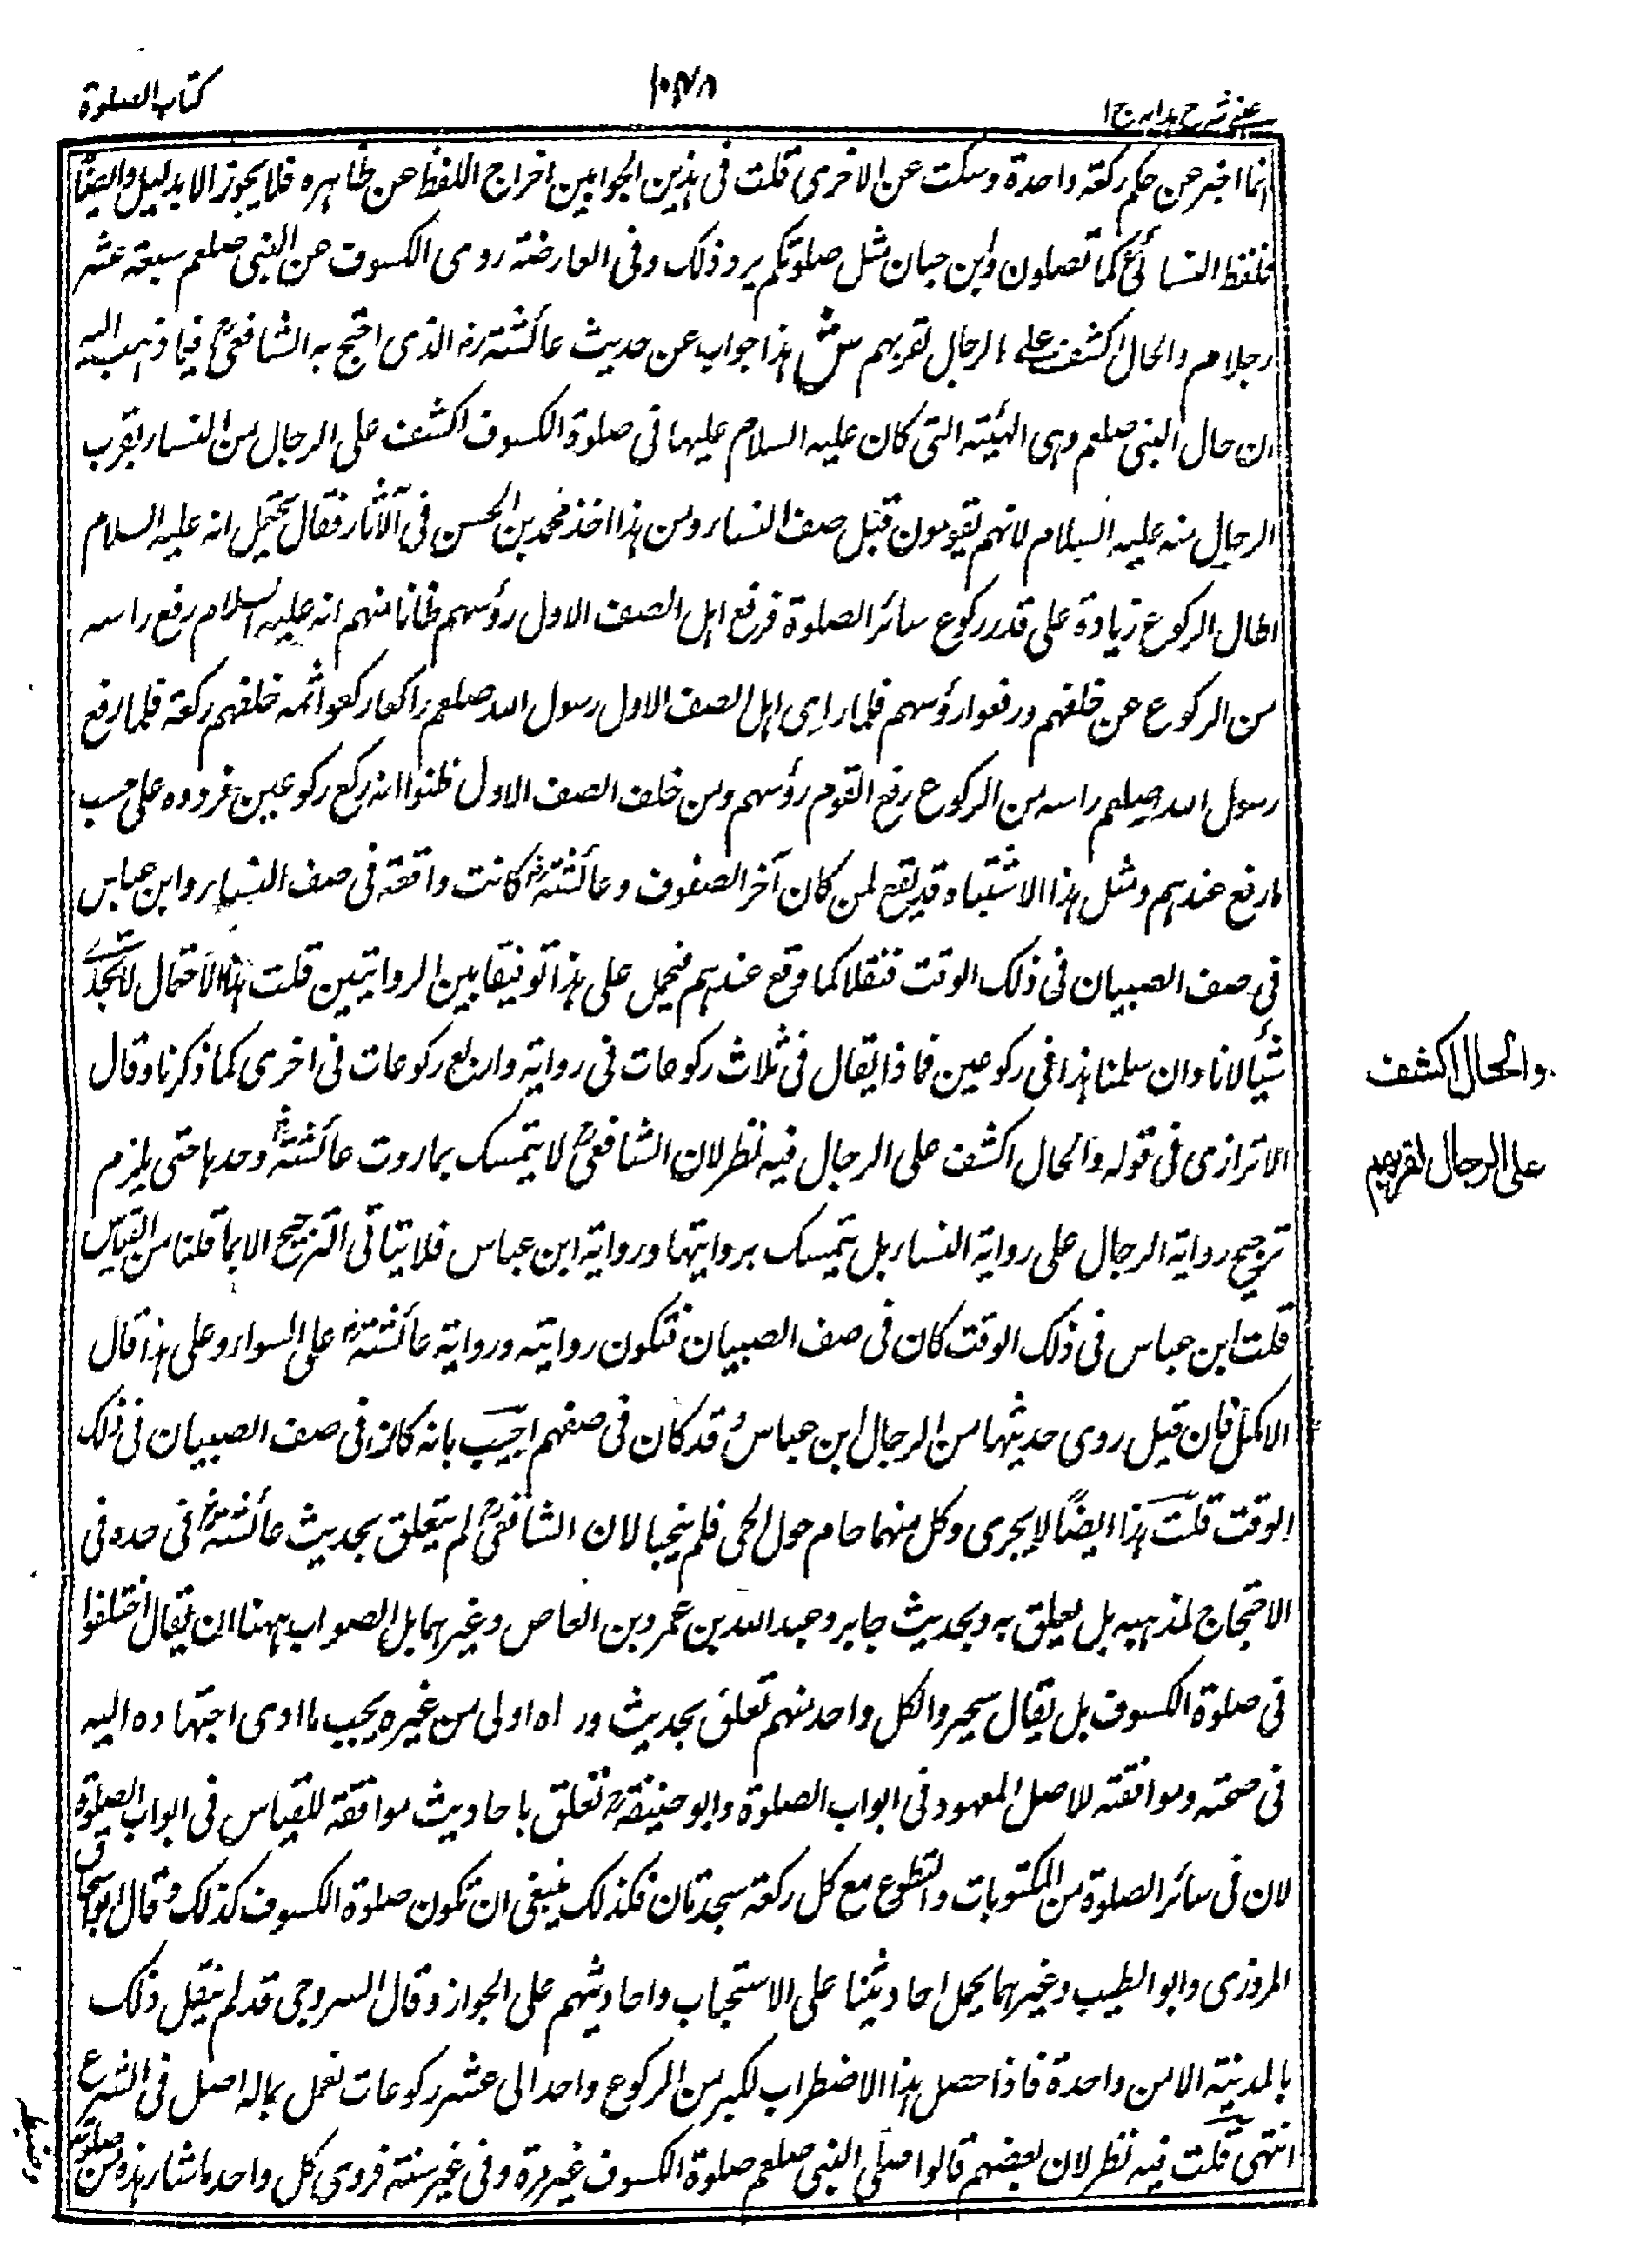 عینی شرح ہدایہ ج ا
۱۰۴۸
کتاب الصلوة
انما اخبر عن حکم رکعة واحدة وسکت عن الاخری قلت فی ہذین الجوابین اخراج اللفظ عن ظاہرہ فلا یجوز الا بدلیل وایضًا
فلفظ النسائیؒ کما تصلون وابن حبان مثل صلوتکم یرد ذلک وفی العارضة روی الکسوف عن النبی صلعم سبعة عشر
رجلا م والحال اکشف علی الرجال لقربہم ش ہذا جواب عن حدیث عائشةؓ الذی احتج بہ الشافعیؒ فیما ذہب الیہ
ان حال النبی صلعم وہی الہیئة التی کان علیہ السلام علیہا فی صلوة الکسوف اکشف علی الرجال من النساء بقرب
الرجال منہ علیہ السلام لانہم یقومون قبل صف النساء ومن ہذا اخذ محمد بن الحسن فی الآثار فقال یحتمل انہ علیہ السلام
اطال الرکوع زیادة علی قدر رکوع سائر الصلوة فرفع اہل الصف الاول رؤسہم ظانا منہم انہ علیہ السلام رفع راسہ
من الرکوع عن خلفہم ورفعوا رؤسہم فلما رای اہل الصف الاول رسول اللہ صلعم راکعا رکعوا ثمہ خلفہم رکعة فلما رفع
رسول اللہ صلعم راسہ من الرکوع رفع القوم رؤسہم ومن خلف الصف الاول ظنوا انہ رکع رکوعین فرووہ علی حسب
ما رفع عندہم ومثل ہذا الاشتباہ قد یقع لمن کان آخر الصفوف وعائشةؓ کانت واقفة فی صف النساء وابن عباس
فی صف الصبیان فی ذلک الوقت فنقلا کما وقع عندہم فیحمل علی ہذا توفیقا بین الروایتین قلت ہذا الاحتمال لا یجدی
شیًٔا لانا وان سلمنا ہذا فی رکوعین فماذا یقال فی ثلاث رکوعات فی روایة واربع رکوعات فی اخری کما ذکرنا وقال
الاترازی فی قولہ والحال اکشف علی الرجال فیہ نظر لان الشافعیؒ لا یتمسک بما روت عائشةؓ وحدہا حتی یلزم
ترجیح روایة الرجال علی روایة النساء بل یتمسک بروایتہا وروایة ابن عباس فلا یتاتی الترجیح الا بما قلنا من القیاس
قلت ابن عباس فی ذلک الوقت کان فی صف الصبیان فتکون روایتہ وروایة عائشةؓ علی السواء وعلی ہذا قال
الاکمل فان قیل روی حدیثہا من الرجال ابن عباسؓ وقد کان فی صفہم اجیب بانہ کان فی صف الصبیان فی ذلک
الوقت قلت ہذا ایضًا لا یجری وکل منہما حام حول الحمی فلم یجبا لان الشافعیؒ لم یتعلق بحدیث عائشةؓ فی حدہ فی
الاحتجاج لمذہبہ بل یعلق بہ وبحدیث جابر وعبد اللہ بن عمرو بن العاص وغیرہما بل الصواب ہہنا ان یقال اختلفوا
فی صلوة الکسوف بل یقال سحیر والکل واحد منہم تعلق بحدیث وراہ اولی من غیرہ بحسب ما ادی اجتہادہ الیہ
فی صحتہ وموافقتہ للاصل المعہود فی ابواب الصلوة وابو حنیفةؒ تعلق باحادیث موافقة للقیاس فی ابواب الصلوة
لان فی سائر الصلوة من المکتوبات والتطوع مع کل رکعة سجدتان فکذلک ینبغی ان تکون صلوة الکسوف کذلک وقال ابو اسحاق
المروزی وابو الطیب وغیرہما یحمل احادیثنا علی الاستحباب واحادیثہم علی الجواز وقال السروجی قد لم ینقل ذلک
بالمدینة الا من واحدة فاذا حصل ہذا الاضطراب لکبیر من الرکوع واحد الی عشر رکوعات نعمل بمالہ اصل فی الشرع
انتہی قلت فیہ نظر لان بعضہم قالوا صلی النبی صلعم صلوة الکسوف غیر مرة وفی غیر سنة فروی کل واحد ما شاہدہ من صلوتہ
والحال اکشف
علی الرجال لقربہم
وضبط